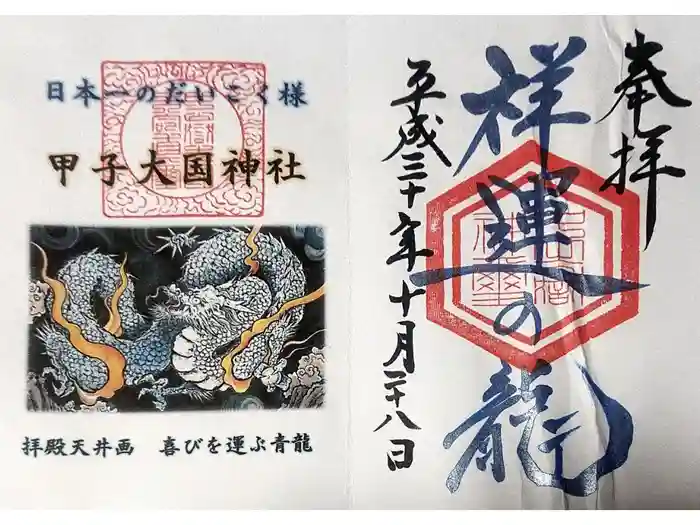 日本一のだいこく様
甲子大国神社
拝殿天井画　喜びを運ぶ青龍
奉拝
祥運の龍
平成三十年十月二十八日